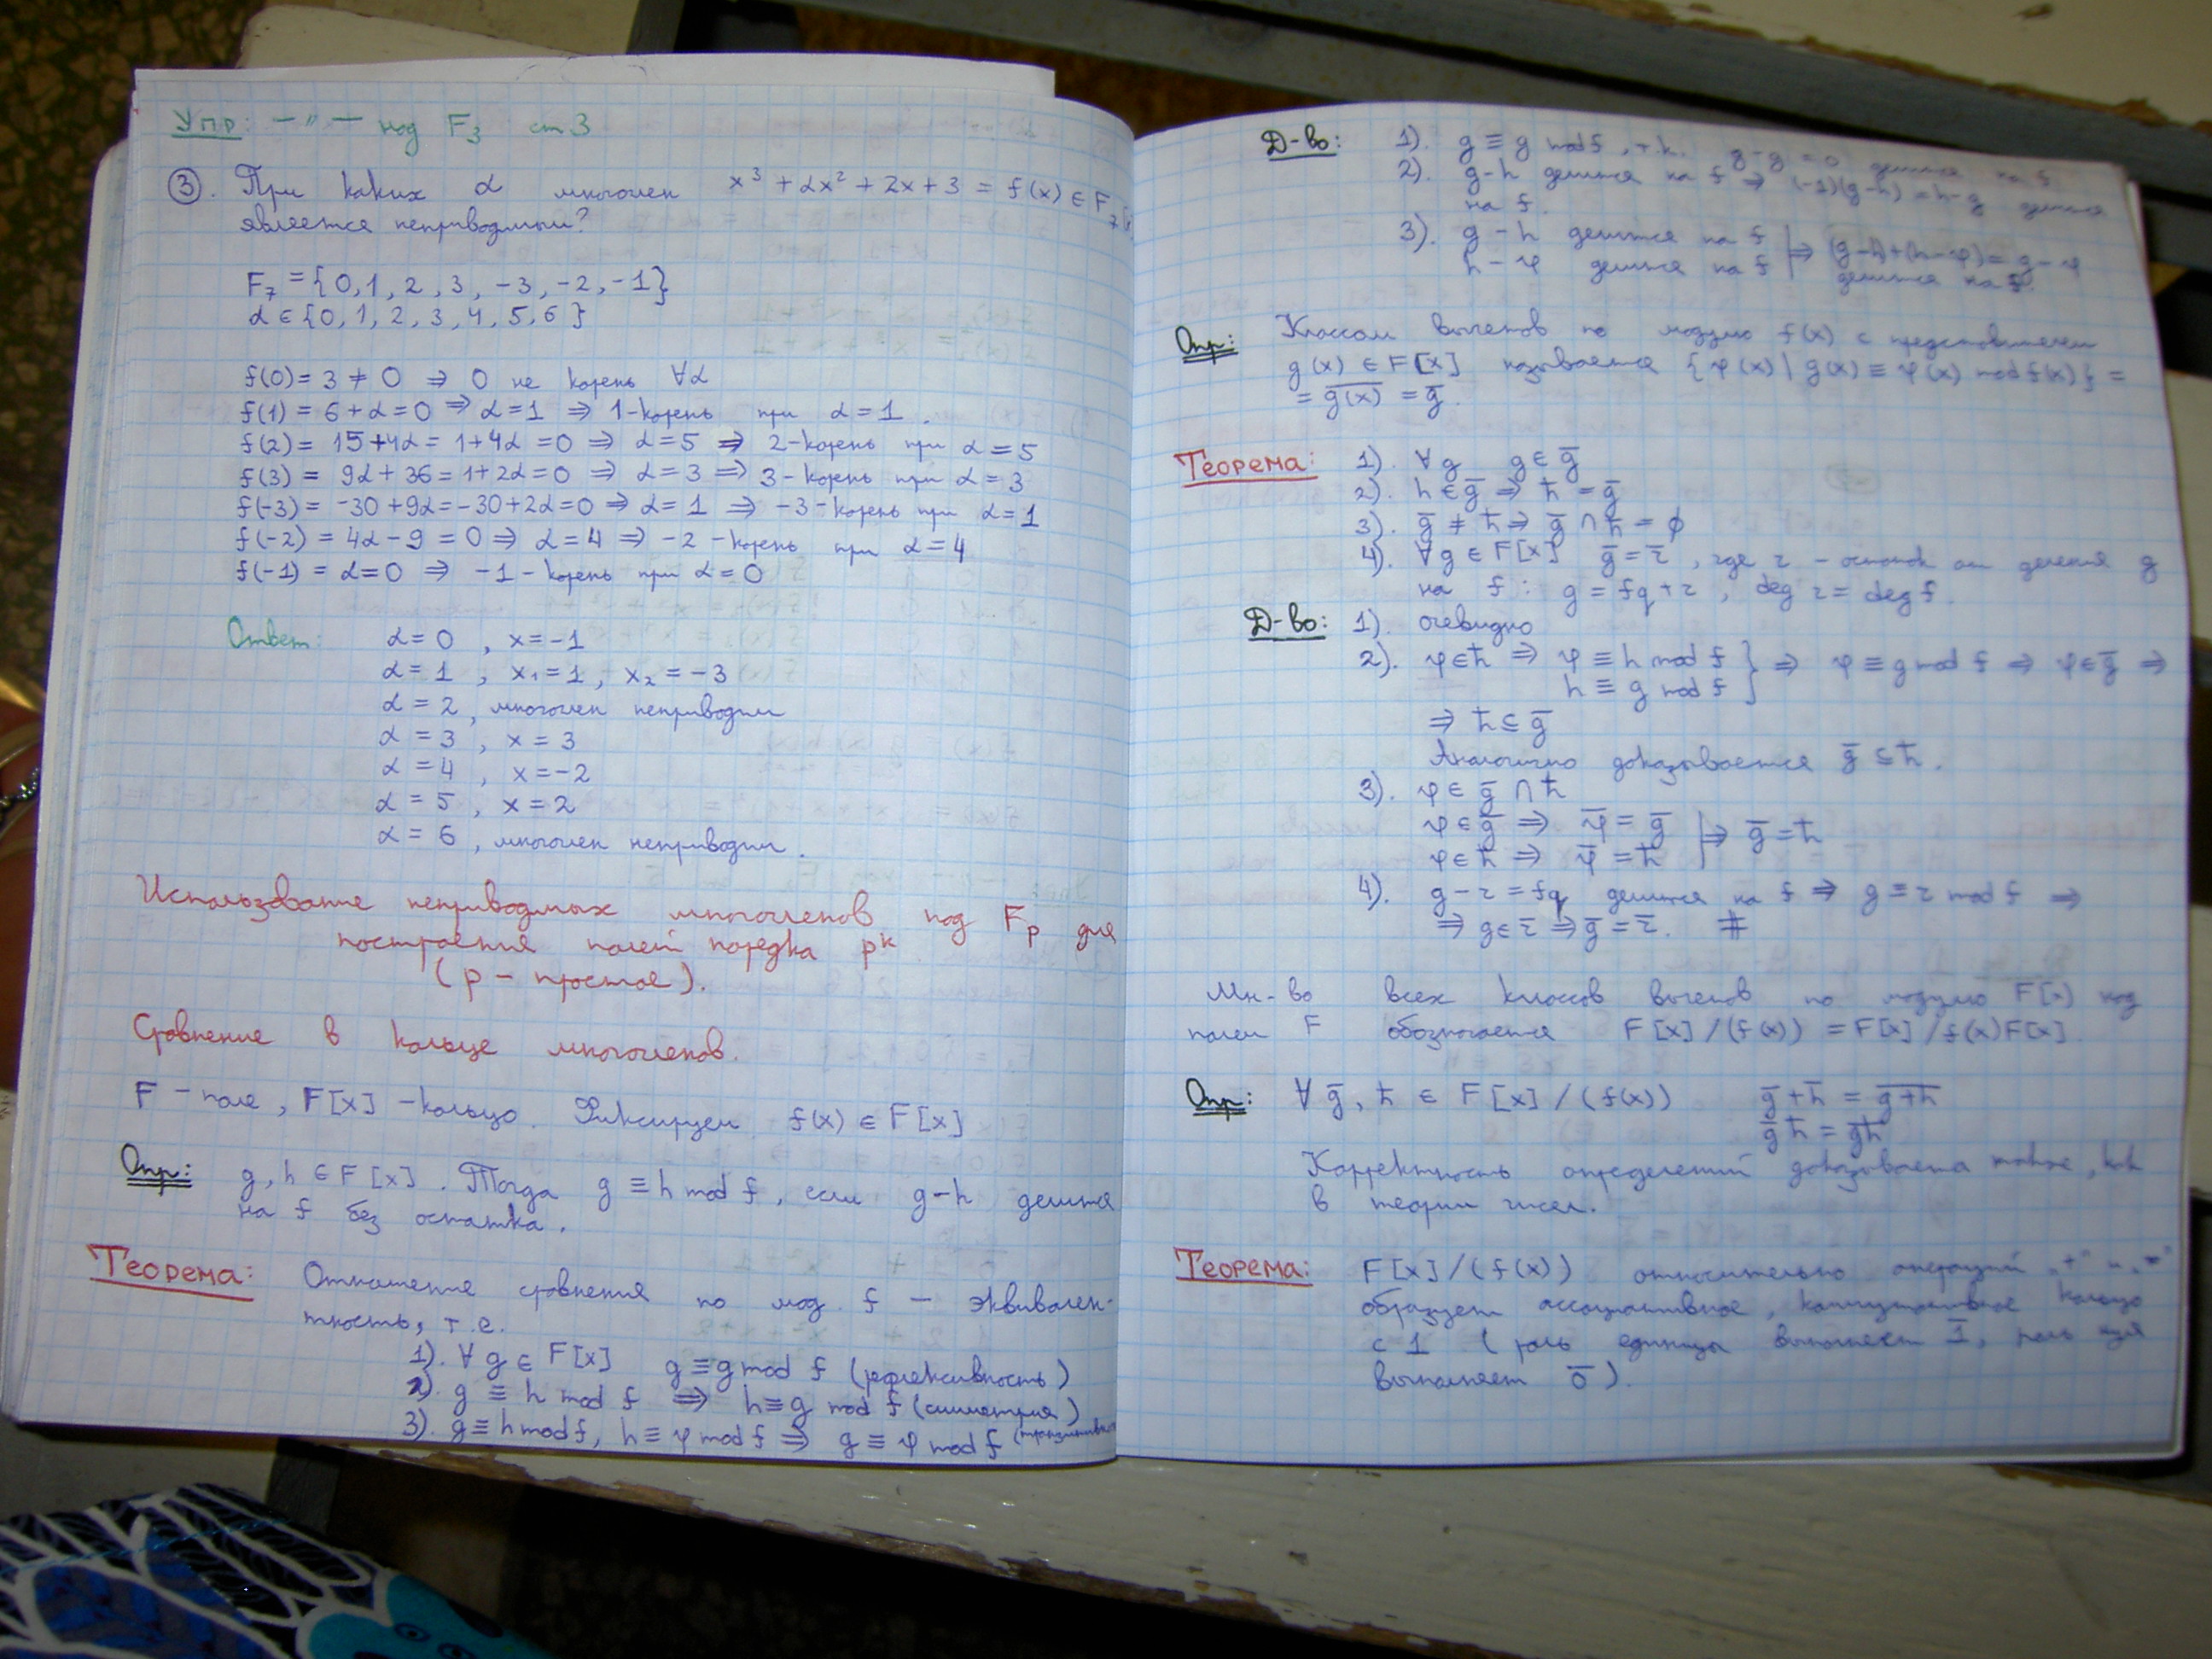 Упр: —〃— над F₃ ст 3
③. При каких α многочлен x³ + αx² + 2x + 3 = f(x) ∈ F₇[
является неприводимым?
F₇ = {0, 1, 2, 3, -3, -2, -1}
α ∈ {0, 1, 2, 3, 4, 5, 6}
f(0) = 3 ≠ 0 ⇒ 0 не корень ∀α
f(1) = 6 + α = 0 ⇒ α = 1 ⇒ 1 - корень при α = 1.
f(2) = 15 + 4α = 1 + 4α = 0 ⇒ α = 5 ⇒ 2 - корень при α = 5
f(3) = 9α + 36 = 1 + 2α = 0 ⇒ α = 3 ⇒ 3 - корень при α = 3
f(-3) = -30 + 9α = -30 + 2α = 0 ⇒ α = 1 ⇒ -3 - корень при α = 1
f(-2) = 4α - 9 = 0 ⇒ α = 4 ⇒ -2 - корень при α = 4
f(-1) = α = 0 ⇒ -1 - корень при α = 0
Ответ: α = 0, x = -1
α = 1, x₁ = 1, x₂ = -3
α = 2, многочлен неприводим
α = 3, x = 3
α = 4, x = -2
α = 5, x = 2
α = 6, многочлен неприводим.
Использование неприводимых многочленов над F_p для
построения полей порядка p^k
(p - простое).
Сравнение в кольце многочленов.
F - поле, F[x] - кольцо. Фиксируем f(x) ∈ F[x]
Опр: g, h ∈ F[x]. Тогда g ≡ h mod f, если g-h делится
на f без остатка.
Теорема: Отношение сравнения по мод. f - эквивален-
тность, т.е.
1). ∀ g ∈ F[x] g ≡ g mod f (рефлексивность)
2). g ≡ h mod f ⇒ h ≡ g mod f (симметрия)
3). g ≡ h mod f, h ≡ φ mod f ⇒ g ≡ φ mod f
Д-во: 1). g ≡ g mod f, т.к. g - g = 0 делится на f
2). g - h делится на f ⇒ (-1)(g-h) = h-g делится
на f.
3). g - h делится на f | ⇒ (g-h)+(h-φ) = g-φ
h - φ делится на f | делится на f.
Опр: Классом вычетов по модулю f(x) с представителем
g(x) ∈ F[x] называется {φ(x) | g(x) ≡ φ(x) mod f(x)} =
= g̅(̅x̅)̅ = g̅.
Теорема: 1). ∀g g ∈ g̅
2). h ∈ g̅ ⇒ h̅ = g̅
3). g̅ ≠ h̅ ⇒ g̅ ∩ h̅ = ϕ
4). ∀g ∈ F[x] g̅ = r̅, где r - остаток от деления g
на f: g = fq + r, deg r = deg f.
Д-во: 1). очевидно
2). φ ∈ h̅ ⇒ φ ≡ h mod f } ⇒ φ ≡ g mod f ⇒ φ ∈ g̅ ⇒
h ≡ g mod f }
⇒ h̅ ⊆ g̅
Аналогично доказывается g̅ ⊆ h̅.
3). φ ∈ g̅ ∩ h̅
φ ∈ g̅ ⇒ φ̅ = g̅ | ⇒ g̅ = h̅
φ ∈ h̅ ⇒ φ̅ = h̅
4). g - r = fq делится на f ⇒ g ≡ r mod f ⇒
⇒ g ∈ r̅ ⇒ g̅ = r̅. #
Мн-во всех классов вычетов по модулю F(x) над
полем F обозначается F[x]/(f(x)) = F[x]/f(x)F[x].
Опр: ∀ g̅, h̅ ∈ F[x]/(f(x)) g̅ + h̅ = g̅+̅h̅
g̅ h̅ = g̅h̅
Корректность определений доказывается также, как
в теории чисел.
Теорема: F[x]/(f(x)) относительно операций „+" и „•"
образует ассоциативное, коммутативное кольцо
с 1 (роль единицы выполняет 1̅, роль нуля
выполняет 0̅).